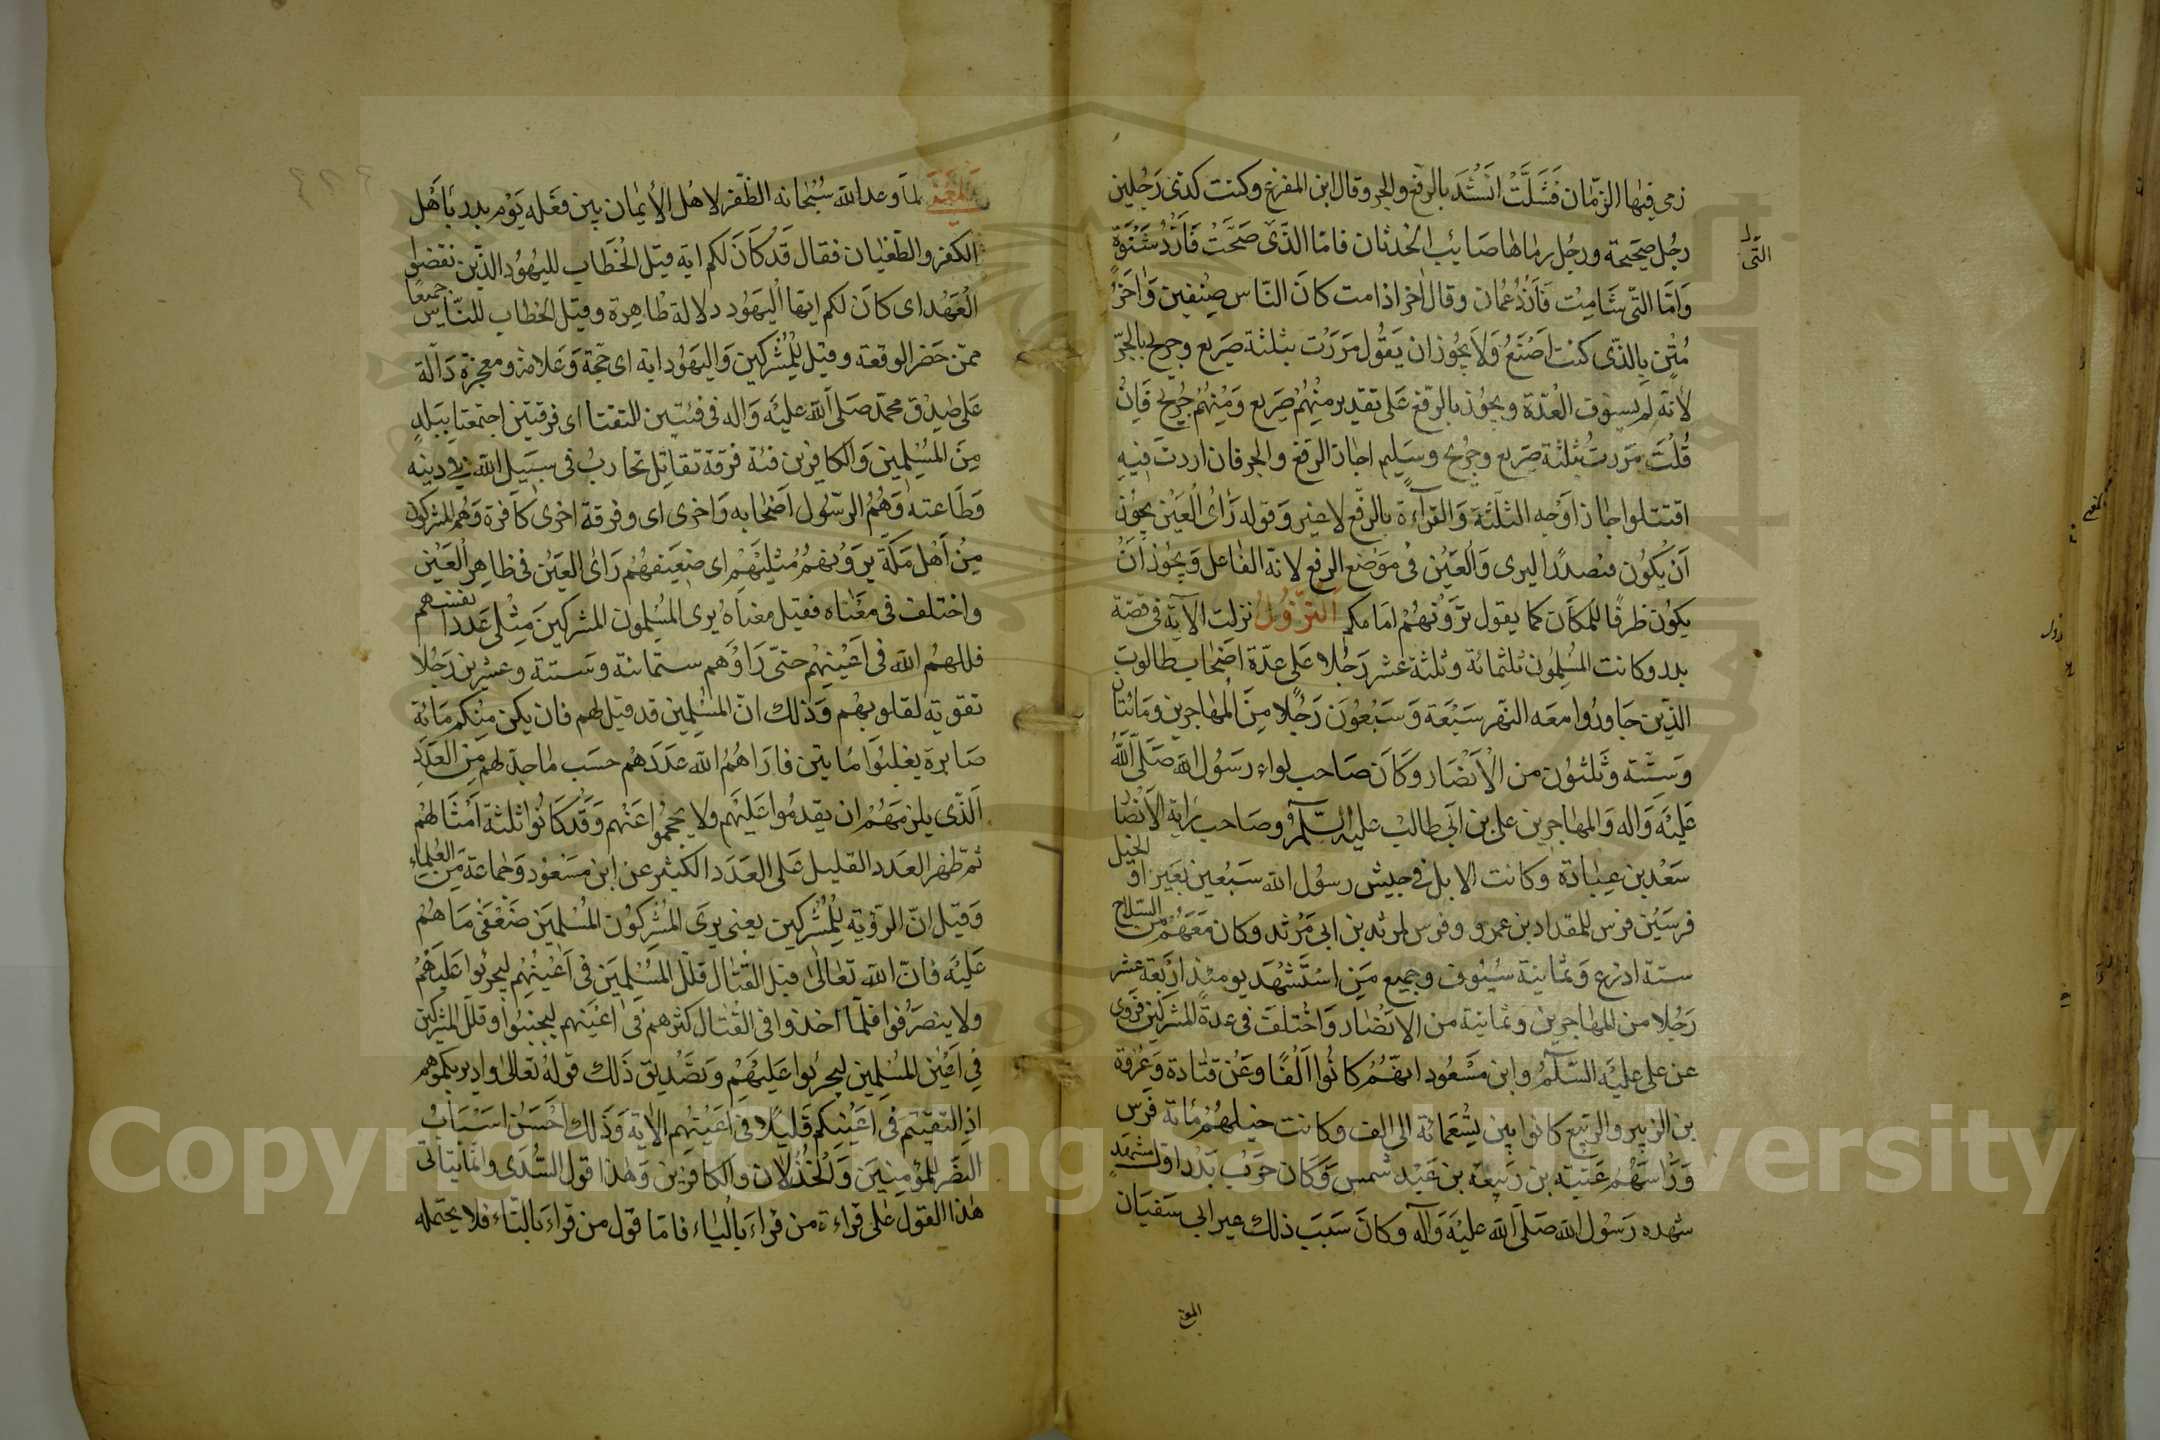 زمى فيها الزمان فشلّت انشد بالرفع والجر وقال ابن المفرغ وكنت كذى رجلين
رجل صحيحة ورجل رماها صايب الحدثان فامّا الذى صحّت فازد شنوة
التى
وامّا التى شامت فازد عمان وقال اخر اذا مت كان النّاس صنفين واخر
مثن بالذى كنت اصنع ولا يجوز ان يقول مررت بثلثة صريع وجريح بالجرّ
لانّه لم يستوف العدّة ويجوز بالرّفع على تقدير منهم صريع ومنهم جريح فان
قلت مررت بثلثة صريع وجريح وسليم اجاز الرفع والجر فان اردت فيه
اقتتلوا جاز اوجه الثلثة والقرآءة بالرّفع لا غير وقوله رأى العين يجوز
ان يكون مصدرا ليرى والعين فى موضع الرفع لانّه الفاعل ويجوز ان
يكون ظرفا للمكان كما يقول ترونهم امامكم النّزول نزلت الآية فى قصّة
بدر وكانت المسلمون ثلثمائة وثلثة عشر رجلا على عدّة اصحاب طالوت
الذين جاوزوا معه النهر سبعة وسبعون رجلا من المهاجرين ومائتان
وستّة وثلثون من الانصار وكان صاحب لواء رسول الله صلّى الله
عليه واله والمهاجرين على بن ابى طالب عليه السّلم وصاحب راية الانصار
سعد بن عبادة وكانت الابل فى جيش رسول الله سبعين بعيرا والخيل
فرسين فرس للمقداد بن عمرو وفرس لمرثد بن ابى مرثد وكان معهم من السلاح
ستة ادرع وثمانية سيوف وجميع من استشهد يومئذ اربعة عشر
رجلا من المهاجرين وثمانية من الانصار واختلف فى عدة المشركين فروى
عن على عليه السّلم وابن مسعود انهم كانوا الفا وعن قتادة وعروة
بن الزبير والربيع كانوا بين تسعمائة الى الف وكانت خيلهم مائة فرس
ورأسهم عتبة بن ربيعة بن عبد شمس وكان حرب بدر اوّل مشهد
شهده رسول الله صلّى الله عليه وآله وكان سبب ذلك عير ابى سفيان
المعنى
المعنى لما وعد الله سبحانه الظّفر لاهل الايمان بين فعله يوم بدر باهل
الكفر والطّغيان فقال قد كان لكم اية قيل الخطاب لليهود الذين نقضوا
العهد اى كان لكم ايها اليهود دلالة ظاهرة وقيل الخطاب للنّاس جميعا
ممّن حضر الوقعة وقيل للمشركين واليهود اية اى حجّة وعلامة ومعجزة دالّة
على صدق محمّد صلى الله عليه واله فى فئتين التقتا اى فرقتين اجتمعتا ببلد
من المسلمين والكافرين فئة فرقة تقاتل تحارب فى سبيل الله فى دينه
وطاعته وهم الرّسول اصحابه واخرى اى وفرقة اخرى كافرة وهم المشركون
من اهل مكّة يرونهم مثليهم اى ضعيفهم راى العين فى ظاهر العين
واختلف فى معناه فقيل معناه يرى المسلمون المشركين مثلى عدد انفسهم
قللهم الله فى اعينهم حتى راوهم ستمائة وستة وعشرين رجلا
تقوية لقلوبهم وذلك انّ المسلمين قد قيل لهم فان يكن منكم مائة
صابرة يغلبوا مايتين فاراهم الله عددهم حسب ما حد لهم من العدد
الذى يلزمهم ان يقدموا عليهم ولا يحجموا عنهم وقد كانوا ثلثة امثالهم
ثم ظهر العدد القليل على العدد الكثير عن ابن مسعود وجماعة من العلماء
وقيل انّ الرّؤية للمشركين يعنى يرى المشركون المسلمين ضعفى ما هم
عليه فانّ الله تعالى قبل القتال قلّل المسلمين فى اعينهم ليجرئوا عليهم
ولا ينصرفوا فلمّا اخذوا فى القتال كثّرهم فى اعينهم ليجبنوا وقلّل المشركين
فى اعين المسلمين ليجرئوا عليهم وتصديق ذلك قوله تعالى واذ يريكموهم
اذ التقيتم فى اعينكم قليلا فى اعينهم الاية وذلك احسن اسباب
النصر للمؤمنين والخذلان والكافرين وهذا قول السّدى وانّما يتأتى
هذا القول على قراءة من قراء بالياء فامّا قول من قراء بالتّاء فلا يحتمله
Copyright © King Saud University